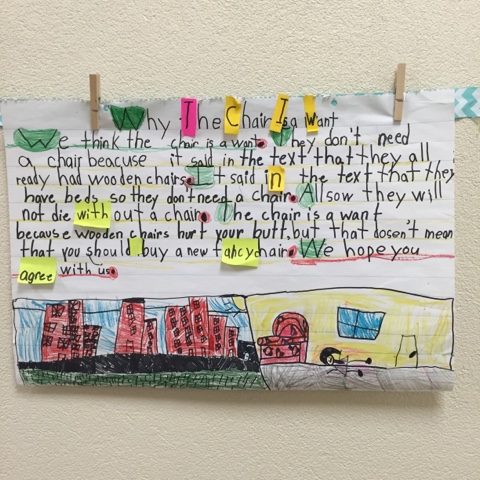 Why The Chair Is a want
We think the chair is a want. They don't need
a chair beacuse it said in the text that they all
ready had wooden chairs. It said in the text that they
have beds so they don't need a chair. Allsow they will
not die with out a chair. The chair is a want
because wooden chairs hurt your butt, but that dosen't mean
that you should buy a new fancy chair. We hope you
agree with us.